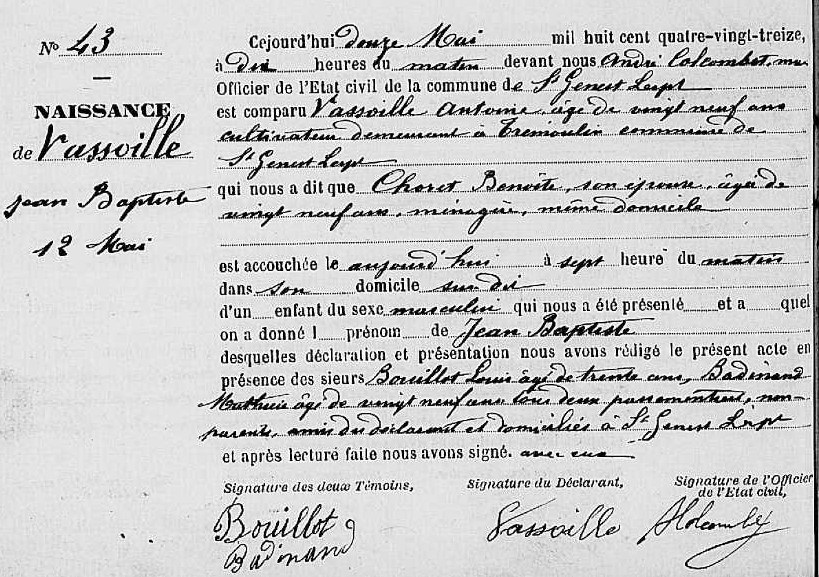 N° 43
NAISSANCE
de Vassoille
Jean Baptiste
12 Mai
Cejourd'hui douze Mai mil huit cent quatre-vingt-treize,
à dix heures du matin devant nous André Colcombet, maire
Officier de l'Etat civil de la commune de St Genest Lerpt
est comparu Vassoille Antoine, âgé de vingt neuf ans
cultivateur demeurant à Tremoulin commune de
St Genest Lerpt
qui nous a dit que Choret Benoîte, son épouse, âgée de
vingt neuf ans, ménagère, même domicile
est accouchée le aujourd'hui à sept heure du matin
dans son domicile sus dit
d'un enfant du sexe masculin qui nous a été présenté et a quel
on a donné l prénom de Jean Baptiste
desquelles déclaration et présentation nous avons rédigé le présent acte en
présence des sieurs Bouillot Louis âgé de trente ans, Badinand
Mathieu âgé de vingt neuf ans tous deux passementiers, non
parents, amis du déclarant et domiciliés à St Genest Lerpt
et après lecture faite nous avons signé. avec eux
Signature des deux Témoins,
Signature du Déclarant,
Signature de l'Officier
de l'Etat civil,
Bouillot
Badinand
Vassoille
AColcombet